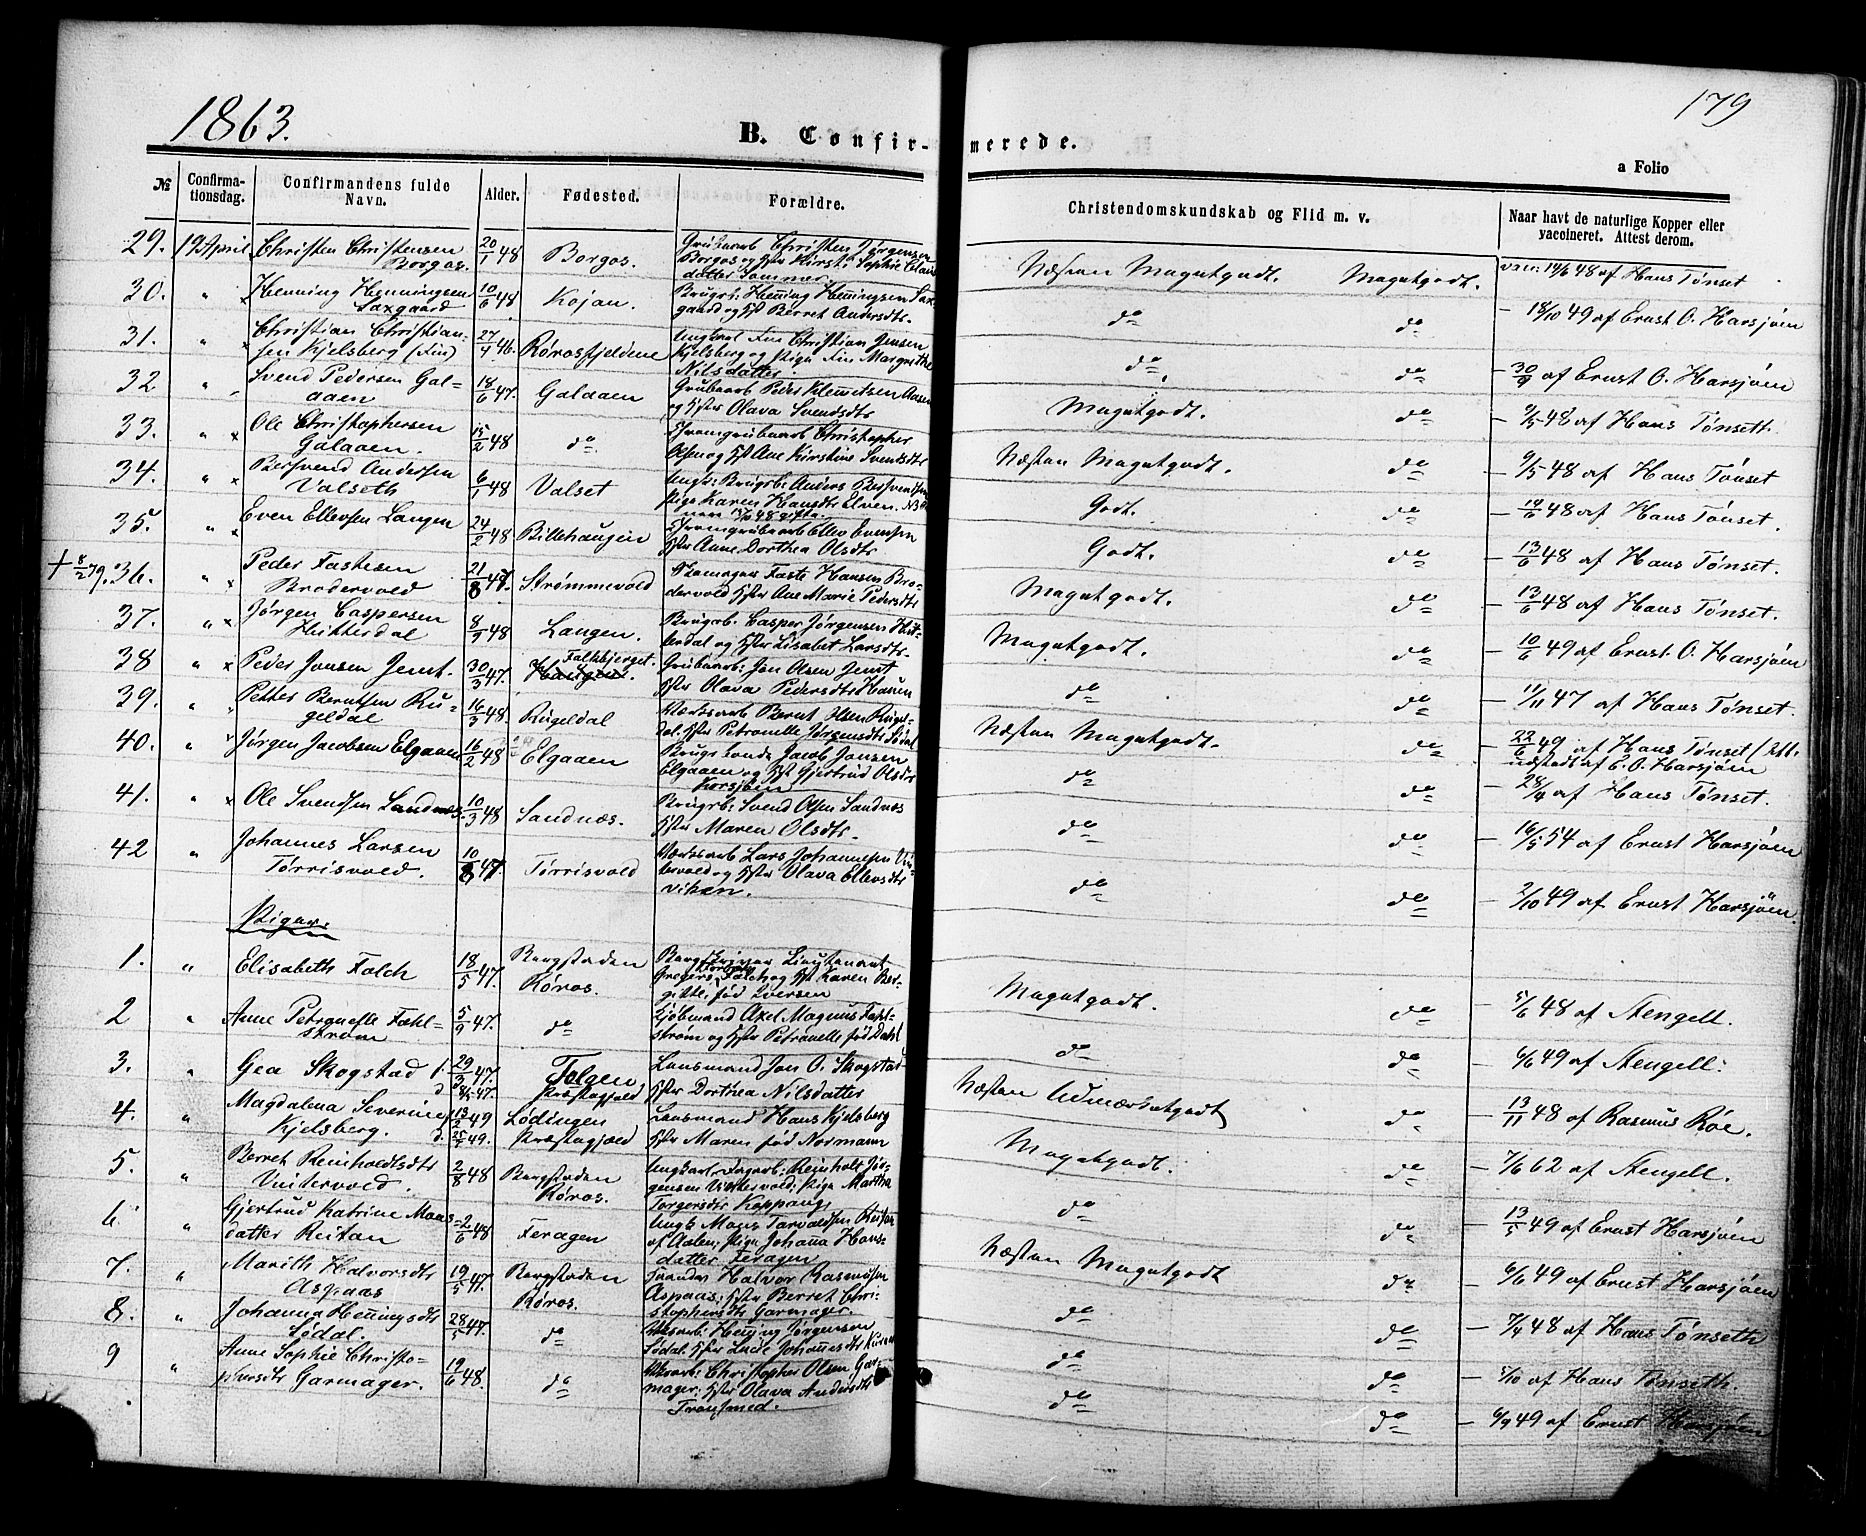 1863.
179
B. Confir-
merede.
a Folio
№
Confirma-
tionsdag.
Confirmandens fulde
Navn.
Alder.
Fødested.
Forældre.
Christendomskundskab og Flid m. v.
Naar havt de naturlige Kopper eller
vaccineret. Attest derom.
29. 19 April Christen Christensen Borgos. 20/1 48 Borgos. Grubearb Christen Jørgensen
Borgos og Hst Kirsti Sophie Claus
datter Sommer
Næsten Megetgodt. Megetgodt. vac: 14/6 48 af Hans Tønset
30. " x Henning Henningsen Saxgaard 10/6 48 Kojan. Brugsb: Henning Henningsen Sax-
gaard og Hst Berret Andersdtr.
do do - 18/10 49 af Ernst O. Harsjøen
31. " x Christian Christian-
sen Kjelsberg (Fin) 27/4 46. Rørosfjeldene Ungkarl Fin Christian Jensen
Kjelsberg og Pige Fin Margrethe
Nilsdatter.
do do - 30/9 af Ernst O. Harsjøen
32 " Svend Pedersen Gal-
aaen 18/6 47. Galaaen Grubearb Peder Klemetsen Aasen
og Hstr Olava Svendsdtr
Megetgodt. do - 9/5 48 af Hans Tønseth.
33. " x Ole Christophersen
Galaaen. 15/2 48 do. Christopher
Olsen og Hst Ane Kirstine Svendsdtr
Næsten Megetgodt. do - 9/5 48 af Hans Tønset
34. " x Bersvend Andersen
Valseth 6/1 48 Valset Ungk: Brugsb: Anders Bersvendsen
Pige Karen Hansdtr Elven.
Godt. do - 19/6 48 af Hans Tønset.
35. " x Even Ellevsen Langen 24/2 48 Billehaugen Ellev Evensen
Hstr Anne Dorthea Olsdtr
Godt. do - 13/6 48 af Hans Tønset.
+ 8/2 79. 36. " x Peder Fastesen
Brodervold 21/8 47. Strømmevold Faste Hansen Bro-
dervold Hstr Ane Marie Pedersdtr
Megetgodt. do - 13/6 48 af Hans Tønset.
37. " x Jørgen Caspersen
Hitterdal 8/3 48 Langen. Brugsb. Casper Jørgensen Hit-
terdal og Hstr Lisabet Larsdtr.
Megetgodt. do - 10/6 49 af Ernst O. Harsjøen
38 " x Peder Jonsen Jemt. 30/3 47. Falkbjerget. Grubearb: Jon Olsen Jemt
Hstr Olava Pedersdtr
do do - 11/11 47 af Hans Tønset.
39. " Petter Berntsen Ru-
geldal 16/3 48. Rugeldal Bernt Olsen Rugel-
dal. Hstr Petronelle Jørgensdtr Sødal
Næsten Megetgodt. do - 22/6 49 af Hans Tønset (Att.
udstedt af E. O. Harsjøen
40. " x Jørgen Jacobsen Elgaaen 16/2 48 Elgaaen Jacob Jonsen
Elgaaen og Hst Gjertrud Olsdtr
Korsjøen
do do - 28/4 af Hans Tønset.
41. " x Ole Svendsen Sandnæs. 10/3 48 Sandnæs. Brugsb: Svend Olsen Sandnæs
Hstr Maren Olsdtr.
do do - 16/5 54 af Ernst Harsjøen
42 " Johannes Larsen
Tørrisvold. 10/8 47 Tørrisvold Lars Johannesen
og Hstr Olava Ellevsdtr
viken.
do do - 2/10 49 af Ernst Harsjøen.
Piger.
1. " Elisabeth Falch 18/5 47. Bergstaden
Røros. Bergskriver Lieutenant
Gregers Falch og Hst Karen Bir-
gitte, fød Iversen
Megetgodt. do - 5/6 48 af Stengell.
2 " Anne Petronelle Fahl-
strøm 5/9 47. do Kjøbmand Axel Magnus Fahl-
strøm og Hstr Petronelle fød Dahl
do do - 6/6 49 af Stengell:
3. " Gea Skogstad f: 29/3 47.
d 8/5 47. Tolgen
Præstegjeld Lensmand Jon O. Skogstad
Hstr Dorthea Nilsdatter
Næsten Udmærketgodt do - 13/11 48 af Rasmus Røe.
4. " Magdalena Severine
Kjelsberg. f 13/2 49
d. 25/2 49. Lødingen
Præstegjeld Lensmand Hans Kjelsberg
Hstr Maren fød Normann
Megetgodt. do - 7/6 62 af Stengell.
5. " Berret Reinholdtsdtr
Vintervold. 2/8 48 Bergstaden
Røros. Ungkarl Reinholt Jør-
gensen Vintervold; Pige Martha
Torgersdtr Koppang
do do - 13/5 49 af Ernst Harsjøen
6. " Gjertrud Katrine Mons-
datter Reitan 2/6 48 Feragen Ungk Mons Tarvaldsen Reitan
af Aalen; Pige Johanna Hans-
datter Feragen
Næsten Megetgodt do - 6/6 49 af Ernst Harsjøen
7. " Marith Halvorsdtr
Aspaas 19/5 47. Bergstaden
Røros. Halvor Rasmusen
Aspaas; Hstr Berret Chri-
stophersdtr Garmager.
do do - 7/4 48 af Hans Tønseth
8. " Johanna Henningsdtr
Sødal. 28/5 47. do Henning Jørgensen
Sødal. Hstr Lucie Johannesdtr
do do - 5/10 af Hans Tønseth.
9 " Anne Sophie Christo-
phersdtr Garmager. 19/6 48. do Christopher Olsen Gar-
mager; Hstr Olava Andersdtr
Trøsmed.
do do - 6/9 49 af Ernst Harsjøen